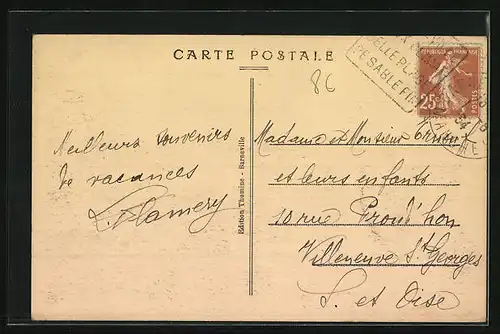 CARTE POSTALE
86
BELLE PLAGE
DE SABLE FIN
REPUBLIQUE FRANÇAISE
25c
POSTES
34
Meilleurs souvenirs
de vacances
Edition Thomine - Barneville
Madame et Monsieur
et leurs enfants
10 rue Proud'hon
Villeneuve St Georges
S. et Oise